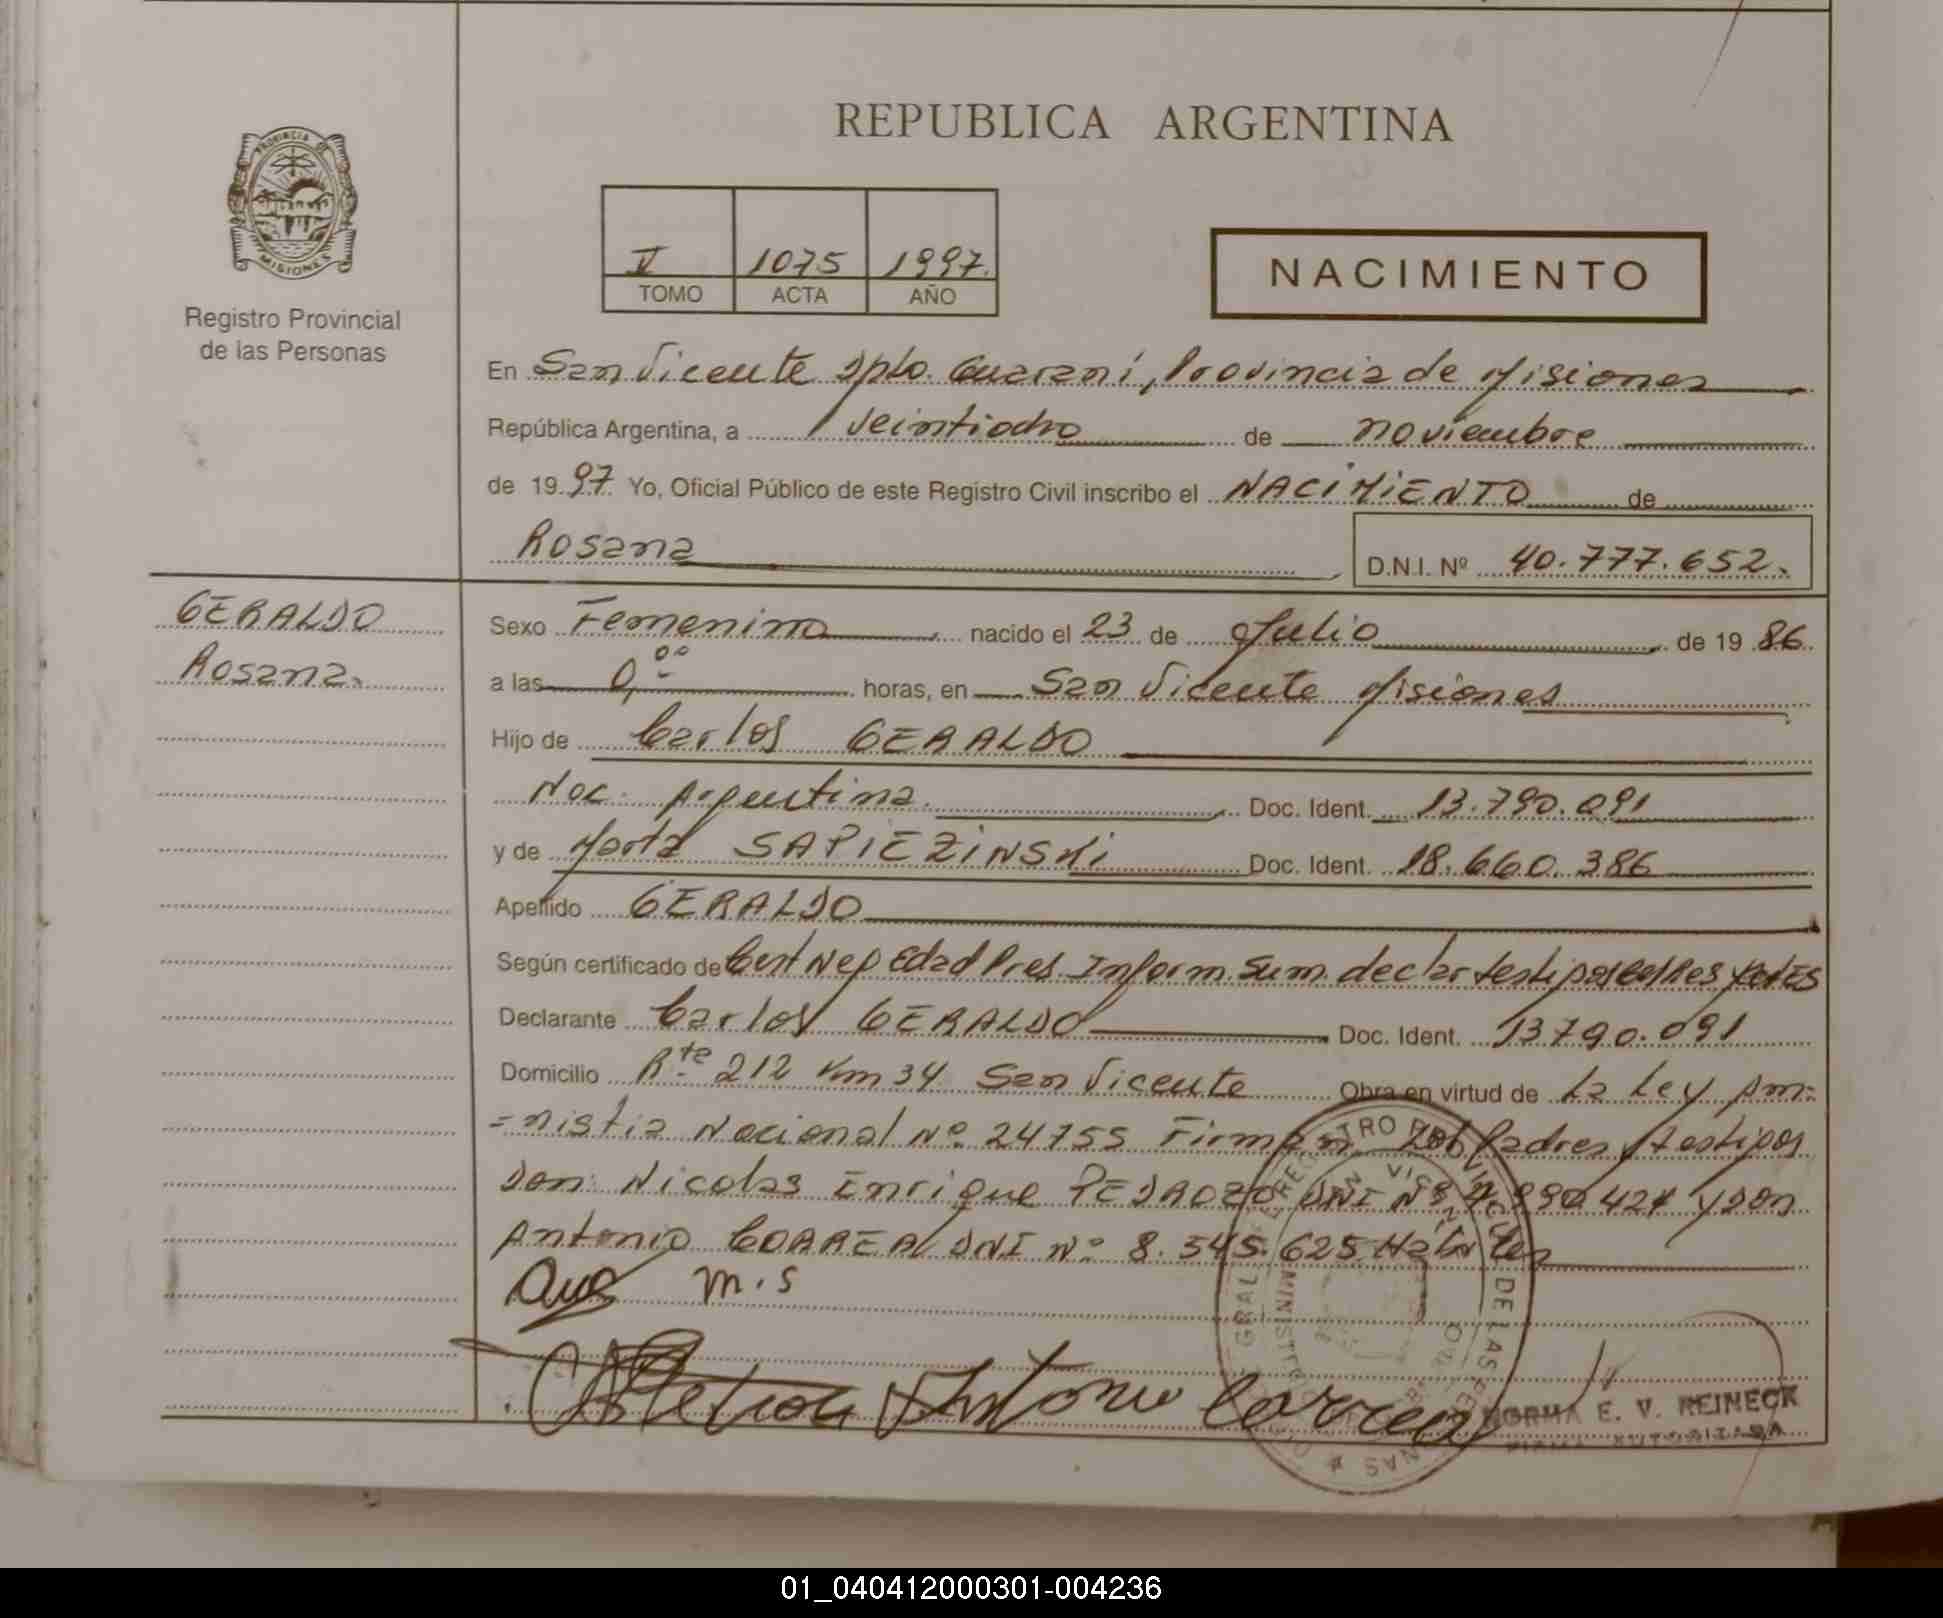 REPUBLICA ARGENTINA
PROVINCIA DE
MISIONES
Registro Provincial
de las Personas
V 1075 1997.
TOMO ACTA AÑO
NACIMIENTO
En San Vicente Dpto. Guaraní, Provincia de Misiones
República Argentina, a veintiocho de noviembre
de 1997 Yo, Oficial Público de este Registro Civil inscribo el NACIMIENTO de
Rosana
D.N.I. Nº 40.777.652.
GERALDO
Rosana.
Sexo Femenino nacido el 23 de Julio de 1986.
a las 0,00 horas, en San Vicente Misiones
Hijo de Carlos GERALDO
Nac. Argentina. Doc. Ident. 13.790.091
y de Marta SAPIEZINSKi Doc. Ident. 18.660.386
Apellido GERALDO
Según certificado de Cert Neg Edad Pres. Inform. Sum. declar testigos
Declarante Carlos GERALDO Doc. Ident. 13790.091
Domicilio Rta 212 Km 34 San Vicente Obra en virtud de La Ley Am=
=nistia Nacional Nº 24755 Firman los Padres y testigos
Don: Nicolas Enrique PEDROZO DNI Nº y Don
Antonio CORREA DNI Nº 8.545.625 Habiles
m.s
Antonio Correa
NORMA E. V. REINECK
FIRMA AUTORIZADA
01_040412000301-004236